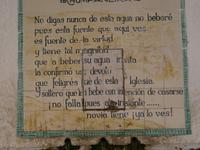 No digas nunca de esta agua no beberé
pues esta fuente que aqui ves
es fuente de la virtud
y tiene tal magnitud
que a beber su agua invita
la confirmó un devoto
que feligrés fue de esta Iglesia
Y soltero que la bebe con intención de casarse
¡no falla pues al instante......
novia tiene ¡ya lo ves!